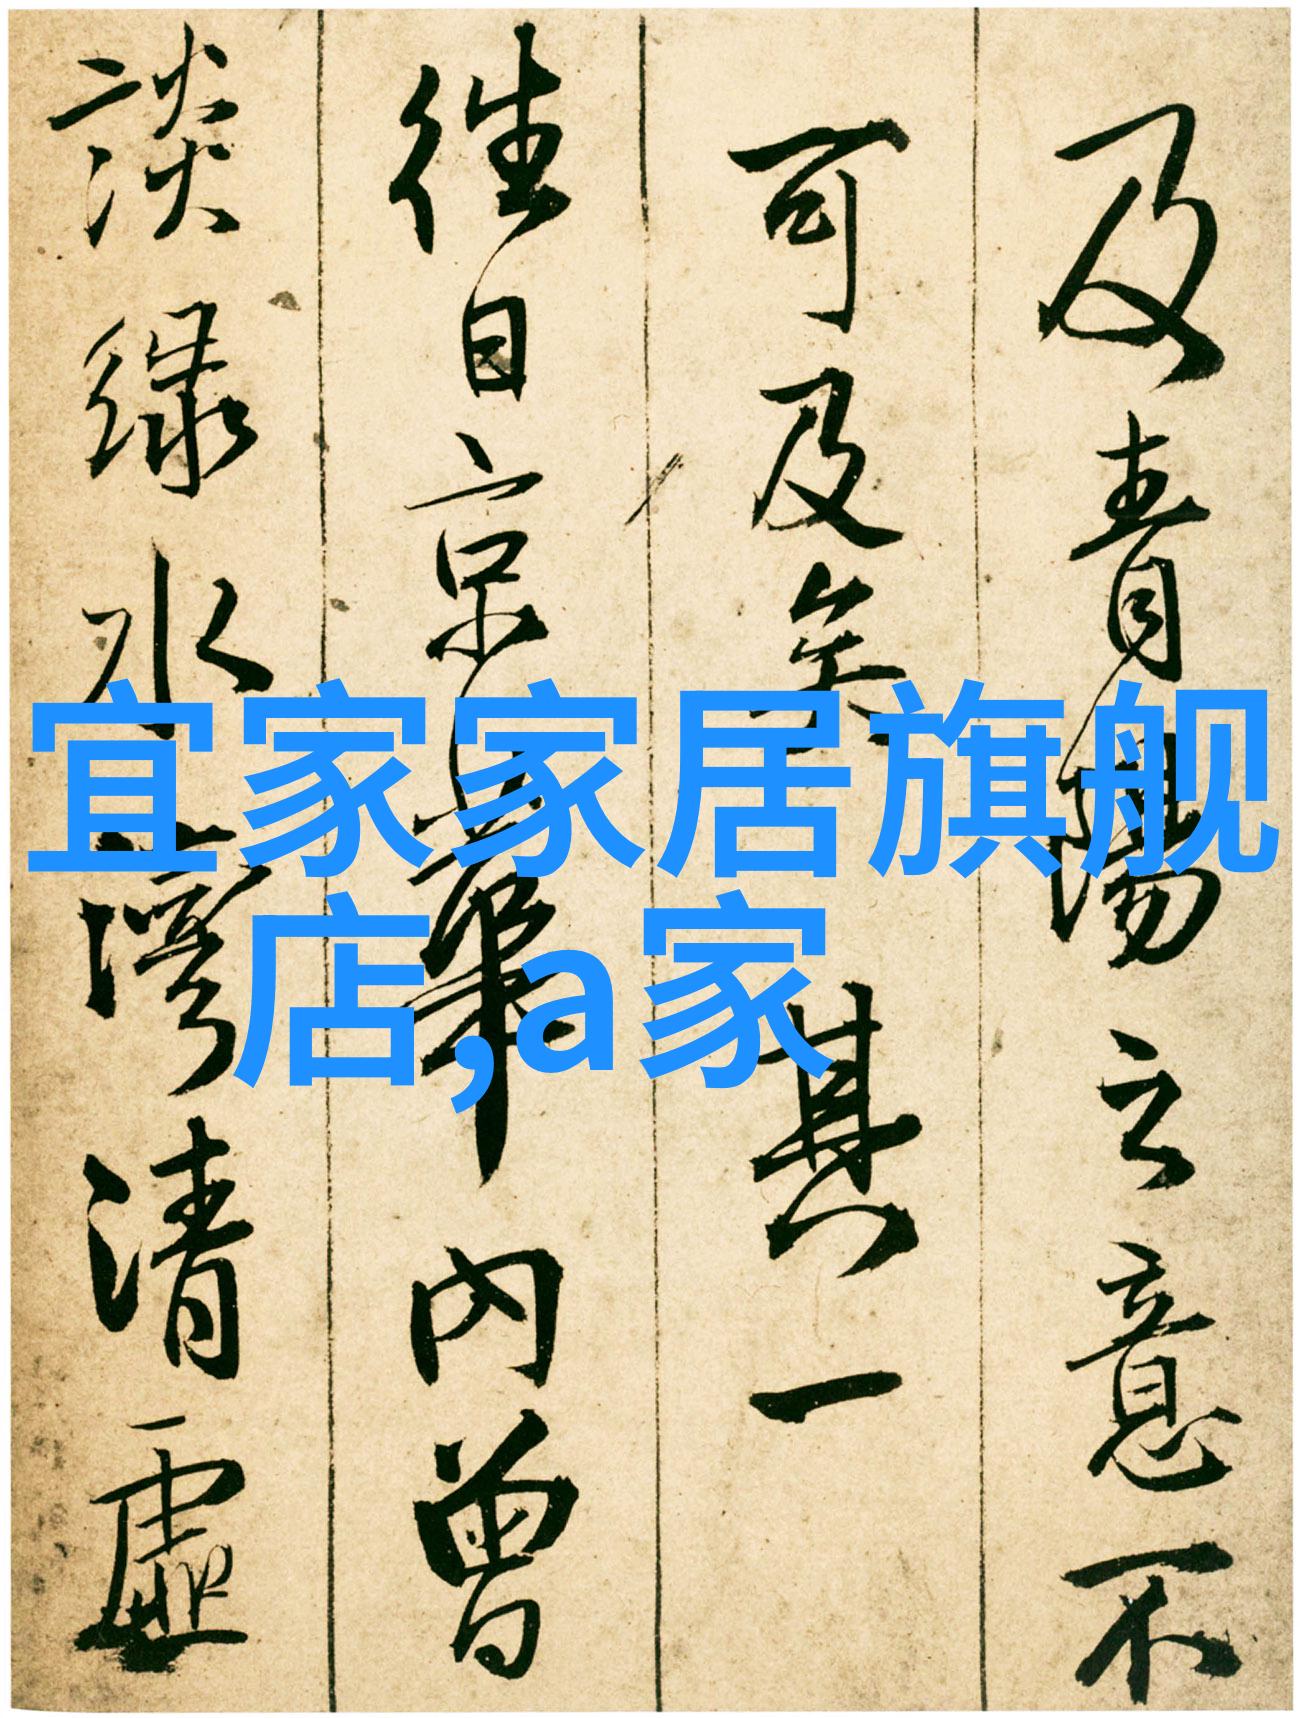 及青陽之意不
可及矣其一
往日京華內曾
談綠水灣清虛
宜家家居旗舰
店,a家